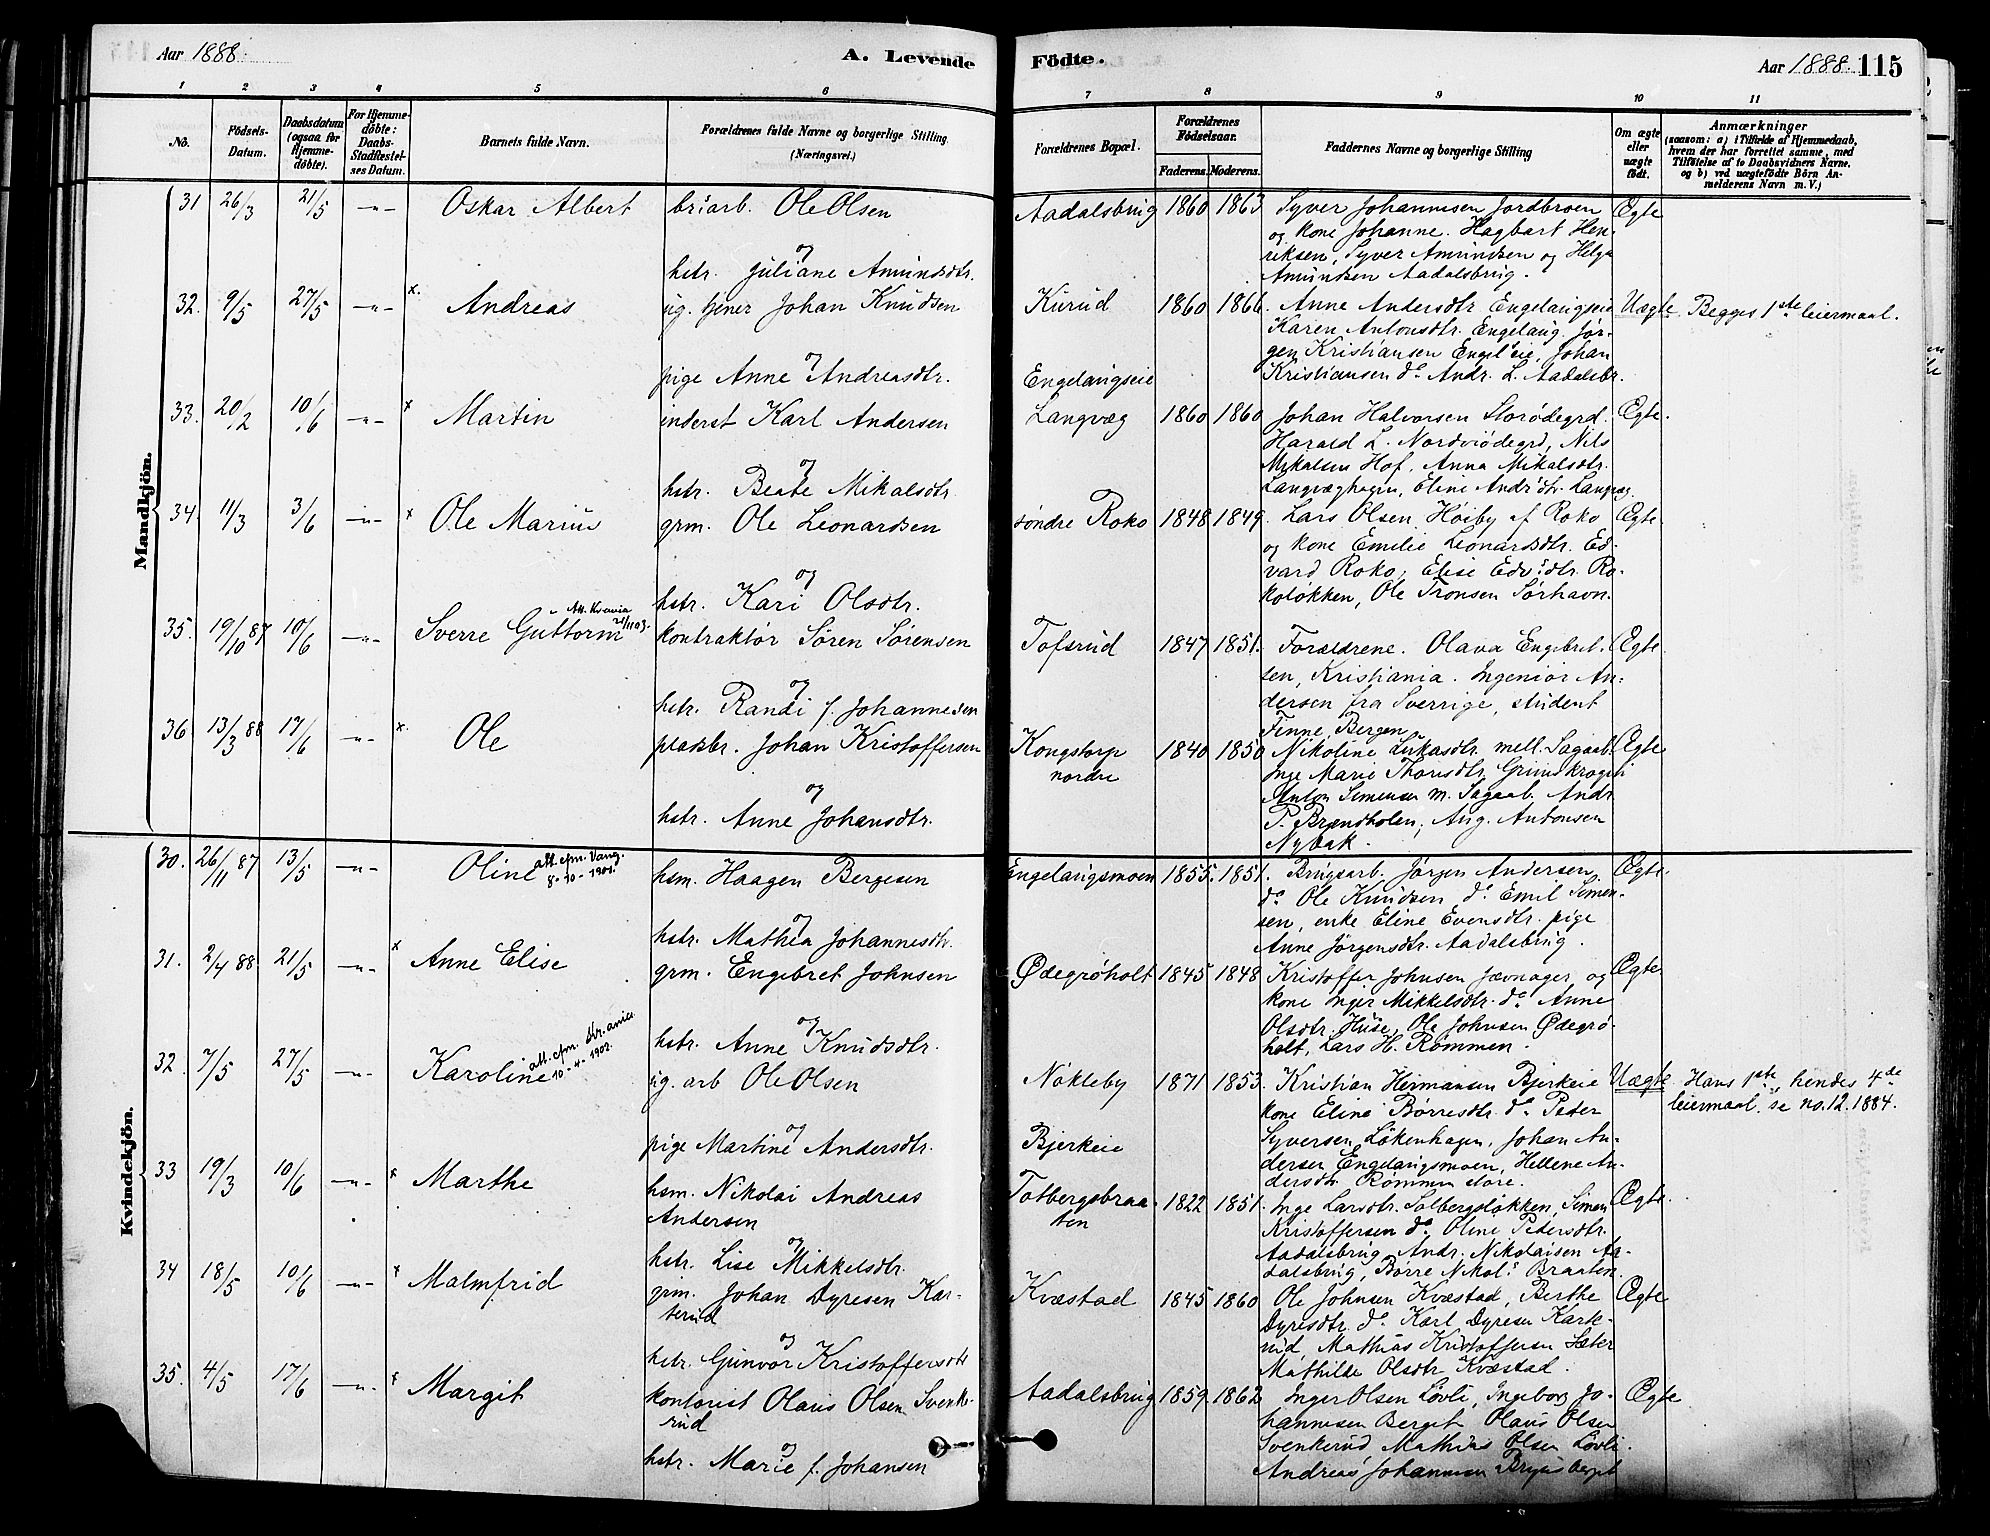 Aar 1888.
A. Levende
Födte.
Aar 1888. 115
1 2 3 4 5 6
7 8 9 10 11
No.
Födsels-Datum.
Daabsdatum (ogsaa for Hjemme-döbte).
For Hjemme-döbte: Daabs-Stadfæstel-ses Datum.
Barnets fulde Navn.
Forældrenes fulde Navne og borgerlige Stilling (Næringsvei.)
Forældrenes Bopæl.
Forældrenes Födselsaar.
Faderens. Moderens.
Faddernes Navne og borgerlige Stilling
Om ægte eller uægte födt.
Anmærkninger
(saasom: a) i Tilfælde af Hjemmedaab, hvem der har forrettet samme, med Tilföielse af to Daabsvidners Navne, og b) ved uægtefödte Börn An-melderens Navn m. V.)
Mandkjön.
31 26/3 21/5 -"- Oskar Albert br:arb. Ole Olsen
og
hstr. Juliane Amundsdtr.
Aadalsbrug 1860 1863 Syver Johannesen Jordbroen Ægte
og kone Johanne. Hagbart Hen-
riksen, Syver Amundsen og Helga
Amundsen Aadalsbrug.
32. 9/5 27/5 -"- x. Andreas ug. tjener Johan Knudsen
og
pige Anne Andreasdtr.
Kurud 1860 1866. Anne Andersdtr Engelaugseie Uægte Begges 1ste leiermaal.
Karen Antonsdtr. Engelaug. Jør-
gen Kristiansen Engel:eie, Johan
Engelaugseie Kristiansen do. Andr. L. Aadalsbr.
33. 20/2 10/6 -"- x Martin inderst Karl Andersen
og
hstr. Beate Mikalsdtr.
Langvæg 1860 1860 Johan Halvorsen Storødegrd. Ægte.
Harald L. Nordviødegrd, Nils
Mikalsen Hof, Anna Mikalsdtr.
Langvæghagen, Eline Andr:dtr. Langvæg.
34. 11/3 3/6 -"- x Ole Marius grm. Ole Leonardsen
og
hstr. Kari Olsdtr.
søndre Roko 1848 1849. Lars Olsen Høiby af Roko Ægte
og kone Emilie Leonardsdtr. Ed-
vard Roko, Elise Edv:dtr. Ro-
koløkken, Ole Tronsen Sørhavn.
35. 19/10 87 10/6 -"- Sverre Guttorm Att. Krania 21/11 03. kontraktør Søren Sørensen
og
hstr. Randi f. Johannesen
Tofsrud 1847 1851. Forældrene. Olava Engebret- Ægte
sen, Kristiania. Ingeniør An-
dersen fra Sverrige, student
Finne, Bergen.
36 13/3 88 17/6 -"- x. Ole pladsbr. Johan Kristoffersen
og
hstr. Anne Johansdtr.
Kongstorp nordre 1840 1850 Nikoline Lukasdtr. mell. Sagaab. Ægte
Inge Marie Thorsdtr. Grimskrogen
Anton Simensen m. Sagaab. Andr
P. Brændholen, Aug. Antonsen
Nybak.
Kvindekjön.
30. 26/11 87 13/5 -"- Oline att. cfm. Vang. 8-10-1901. hsm. Haagen Bergesen
og
hstr. Mathea Johannesdtr.
Engelaugsmoen 1855. 1851. Brugsarb. Jørgen Andersen, Ægte.
do Ole Knudsen, do Emil Simen-
sen, enke Eline Evensdtr. pige
Anne Jørgensdtr. Aadalsbrug.
31. 2/4 88. 21/5 -"- x Anne Elise grm. Engebret Johnsen
og
hstr. Anne Knudsdtr.
Ødegrøholt 1845 1848 Kristoffer Johnsen Jævnager og Ægte
kone Inger Mikkelsdtr. do. Anne
Olsdtr. Huse, Ole Johnsen Ødegrø-
holt, Lars H. Rømmen.
32. 7/5 27/5 -"- Karoline att. cfm. Kr.ania 10-4-1902. ug. arb Ole Olsen
og
pige Martine Andersdtr.
Nøkleby 1871 1853. Kristian Hermansen Bjerkeie Uægte Hans 1ste, hendes 4de
kone Eline Børresdtr. do. Peder leiermaal. se no. 12. 1884.
Bjerkeie Syversen Løkenhagen, Johan An-
dersen Engelaugsmoen, Hellene An-
dersdtr. Rømmen store.
33 19/3 10/6 -"- x Marthe hsm. Nikolai Andreas
Andersen
og
hstr. Lise Mikkelsdtr.
Totbergsbraa-ten 1822 1851. Inge Larsdtr. Solbergsløkken, Simen Ægte
Kristoffersen do. Oline Pedersdtr.
Aadalsbrug, Andr. Nikolaisen Aa-
dalsbrug, Børre Nikol: Braaten.
34 18/5 10/6 -"- x Malmfrid grm. Johan Dyresen Kar-
terud
og
hstr. Gunvor Kristoffersdtr
Kvæstad 1845 1860 Ole Johnsen Kvæstad, Berthe Ægte
Dyresdtr. do. Karl Dyresen Karte-
rud, Mathias Kristoffersen Sæter
Mathilde Olsdtr Kvæstad.
35. 4/5 17/6 -"- x Margit kontorist Olaus Olsen Svenke-
rud
og
hstr. Marie f. Johansen
Aadalsbrug 1859. 1862 Inger Olsen Løvli, Ingeborg Jo- Ægte
hannesen Berget, Olaus Olsen
Svenkerud Mathias Olsen Løvli.
Andreas Johannesen Berget